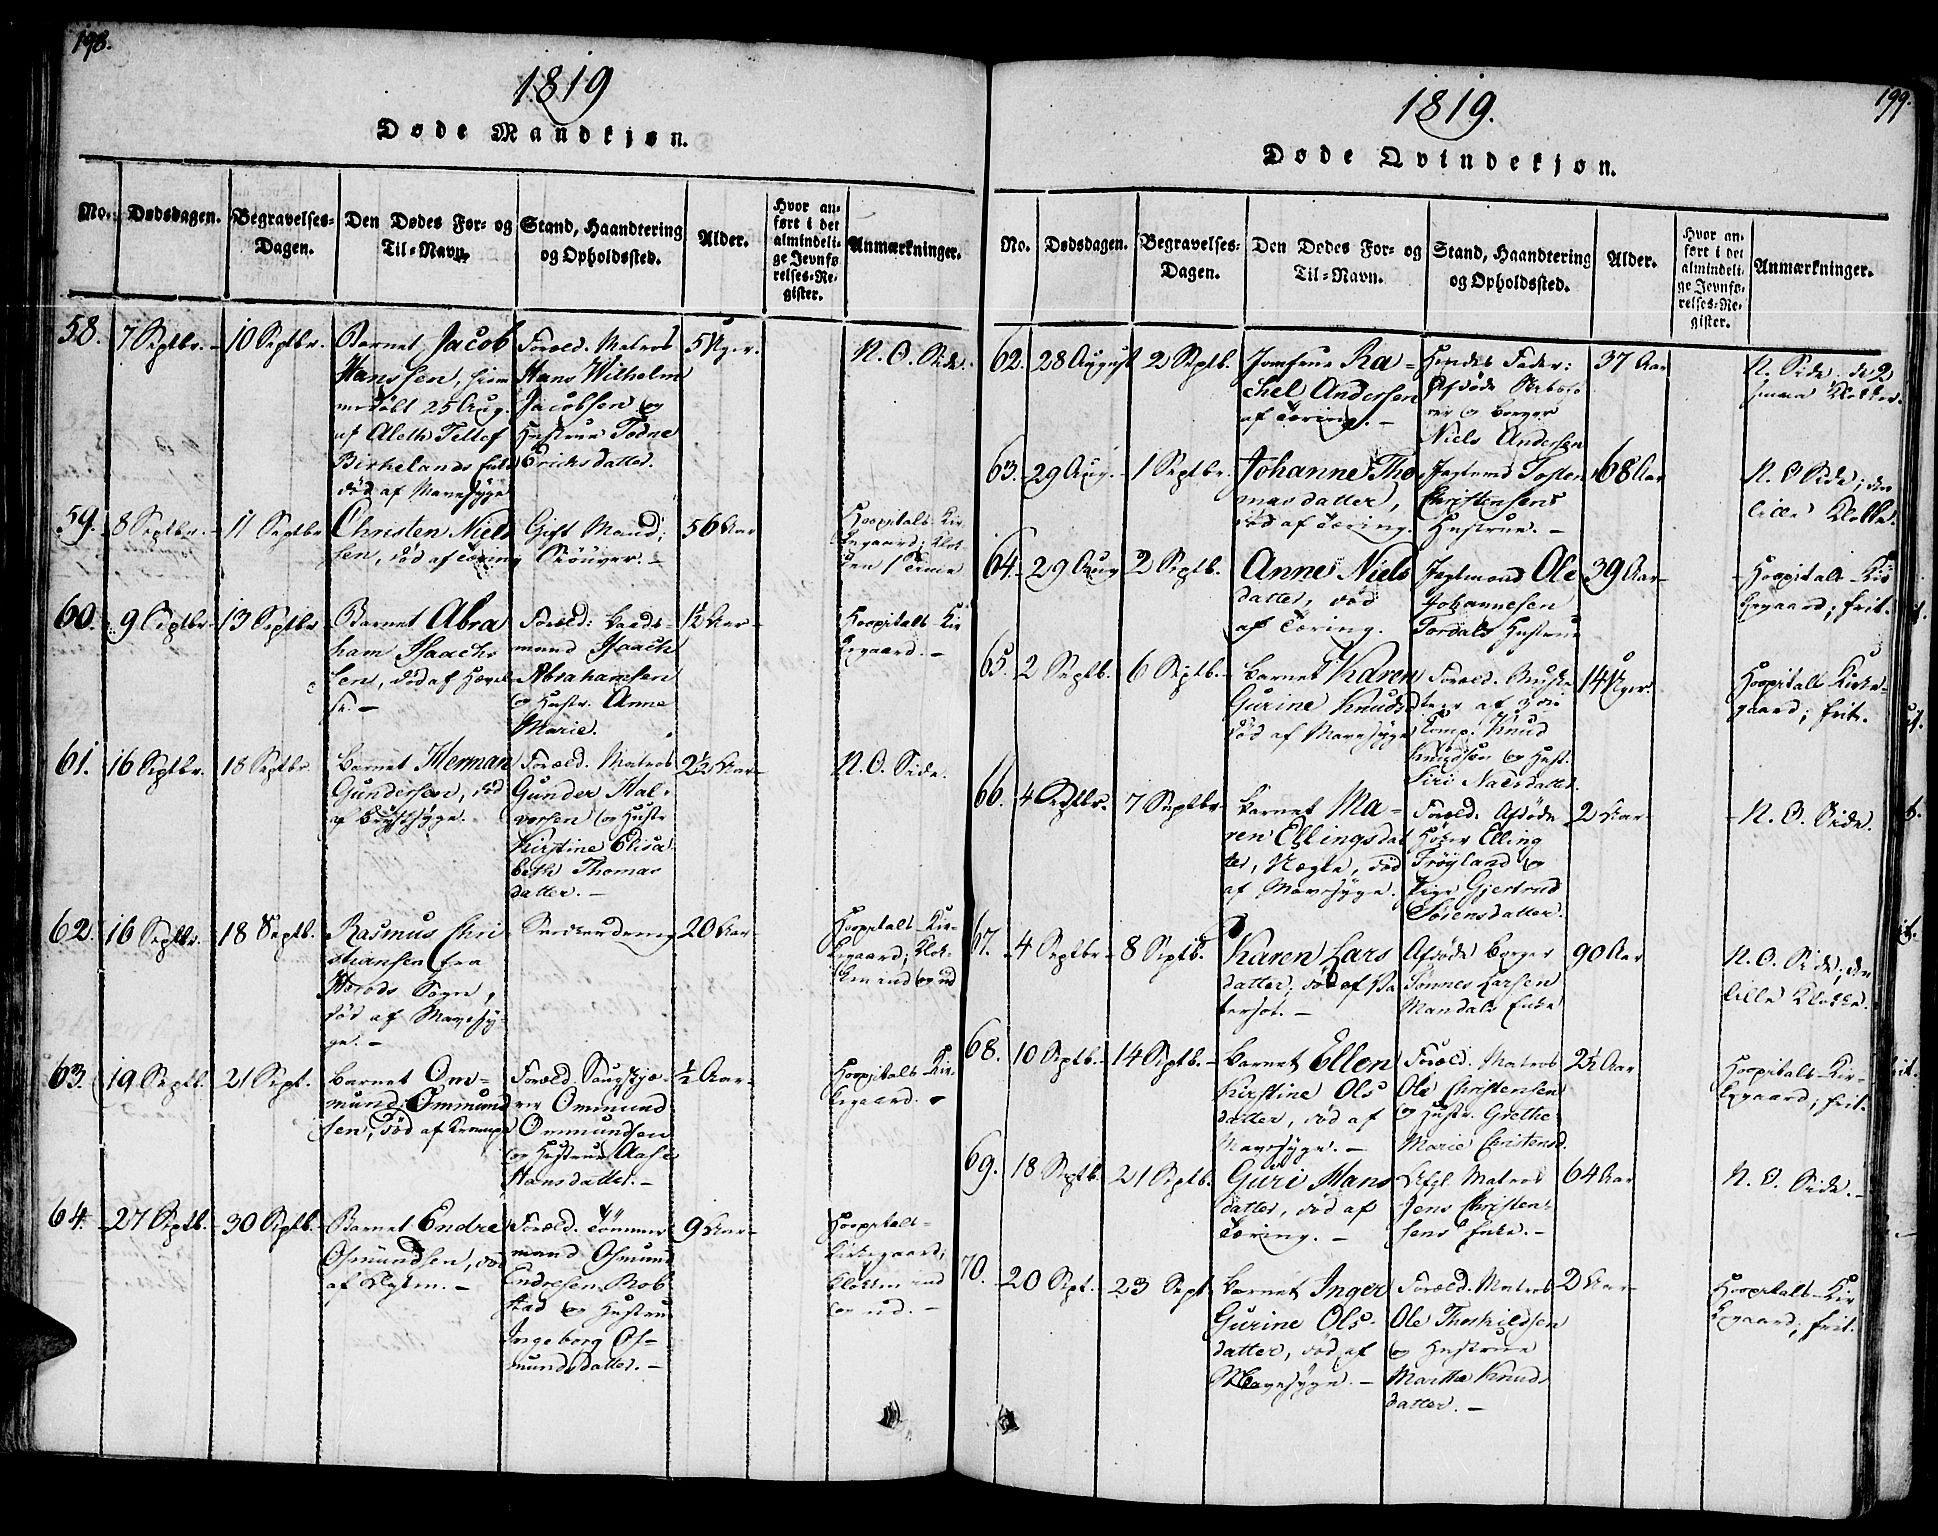 198.
1819
Døde Mandkjøn.
No.
Dødsdagen.
Begravelses-
Dagen.
Den Dødes For- og
Til-Navn.
Stand, Haandtering
og Opholdssted.
Alder.
Hvor an-
ført i det
almindeli-
ge Jevnfø-
relses-Re-
gister.
Anmærkninger.
58.
7 Septbr.
10 Septbr.
Barnet Jacob
Hanssen, hiem
medøbt 25 Aug.
af
Birkelands
død af Mavesyge
Foræld. Matros
Hans Wilhelm
Jacobsen og
Hustrue Todne
Ericksdatter.
5 Uger.
N. O. Side.
59.
8 Septbr.
11 Septbr
Christen Niels
sen, død af Tæring
Gift Mand;
56 Aar
Hospitals Kir
kegaard; Klok
ken 1 Time
60.
9 Septbr.
13 Septbr
Barnet Abra
ham Isaachs
sen, død af
Foræld: Baads
mand Isaach
Abrahamsen
og Hustr. Anne
Marie.
1½ Aar
Hospitals Kir
kegaard. —
61.
16 Septbr.
18 Septbr.
Barnet Herman
Gundersen, død
af Brystsyge.
Foræld. Matros
Gunder Hal-
vorsen og Hustr
Kirstine Elisa
beth Thomas
datter. —
2½ Aar
N. O. Side.
62.
16 Septbr.
18 Septb.
Rasmus Chri
stiansen fra
Sogn,
død af Mavesy-
ge. —
Snekkerdreng
20 Aar
Hospitals Kir-
kegaard; Klok-
ken ind og ud
63.
19 Septb.
21 Sept.
Barnet Om-
mund Ommund
sen, død af Krampe
Foræld.
Ommund
Ommundsen
og Hustrue Aase
Hansdatter. —
½ Aar
Hospitals Kir-
kegaard. —
64.
27 Septb.
30 Septb.
Barnet Endre
Osmundsen, død
af
Foræld. Tømmer
mand Osmund
Endresen Rob
stad og Hustrue
Ingeborg Os-
mundsdatter. —
9 Aar
Hospitals-
Kirkegaard;
Klokken ind
og ud. —
199.
1819.
Døde Qvindekjøn.
No.
Dødsdagen.
Begravelses-
Dagen.
Den Dødes For- og
Til-Navn.
Stand, Haandtering
og Opholdssted.
Alder.
Hvor an-
ført i det
almindeli-
ge Jevnfø-
relses-Re-
gister.
Anmærkninger.
62.
28 August
2 Septb.
Jomfrue Ra-
chel Andersen
af Tæring. —
Hendes Fader:
Afdøde
og Borger
Niels Andersen
37 Aar
N. Side. de 2
smaa Klokker.
63.
29 Aug.
1 Septbr.
Johanne Tho
masdatter,
død af Tæring.
Jagtmd Tosten
Christensens
Hustrue. —
68 Aar
N. O Side; den
lille Klokke.
64.
29 Aug
2 Septb.
Anne Niels
datter, død
af Tæring.
Jagtmand Ole
Johannesen
Tordals Hustrue
39 Aar
Hospitals Kir
kegaard; frit.
65.
2 Septb.
6 Septb.
Barnet Karen
Gurine Knudsd
død af Mavesyge
Foræld. Muske
teer af 3die
Comp. Knud
Knudsen og Hust.
Siri Nalsdatter.
14 Uger.
Hospitals Kirke-
gaard; frit.
66.
4 Septbr.
7 Septbr
Barnet Ma-
ren Ellingsdat
ter, Uægte, død
af Mavesyge.
Foræld. Afdøde
Høker Elling
Frøyland og
Pige Gjertrud
Sørensdatter.
2 Aar
N. O. Side.
67.
4 Septbr
8 Septb.
Karen Lars
datter, død af Va
tersot. —
Afdøde Borger
Tønnes Larsen
Mandals Enke
90 Aar
N. O. Side; den
lille Klokke.
68.
10 Septb.
14 Septb.
Barnet Ellen
Kirstine Ols
datter, død af
Mavesyge. —
Foræld. Matros
Ole Christensen
og Hustr. Grethe
Marie Christensd.
2½ Aar
Hospitals-Kir-
kegaard; frit.
69.
18 Septb.
21 Septb.
Guri Hans
datter, død af
Tæring. —
Afgl. Matros
Jens Christen-
sens Enke. —
64 Aar
N. O. Side. —
70.
20 Sept.
23 Sept
Barnet Inger
Gurine Ols-
datter, død af
Mavesyge. —
Foræld. Matros
Ole Thorkildsen
og Hustrue
Marthe Knuds
datter. —
2 Aar
Hospitals-Kir
kegaard; frit.